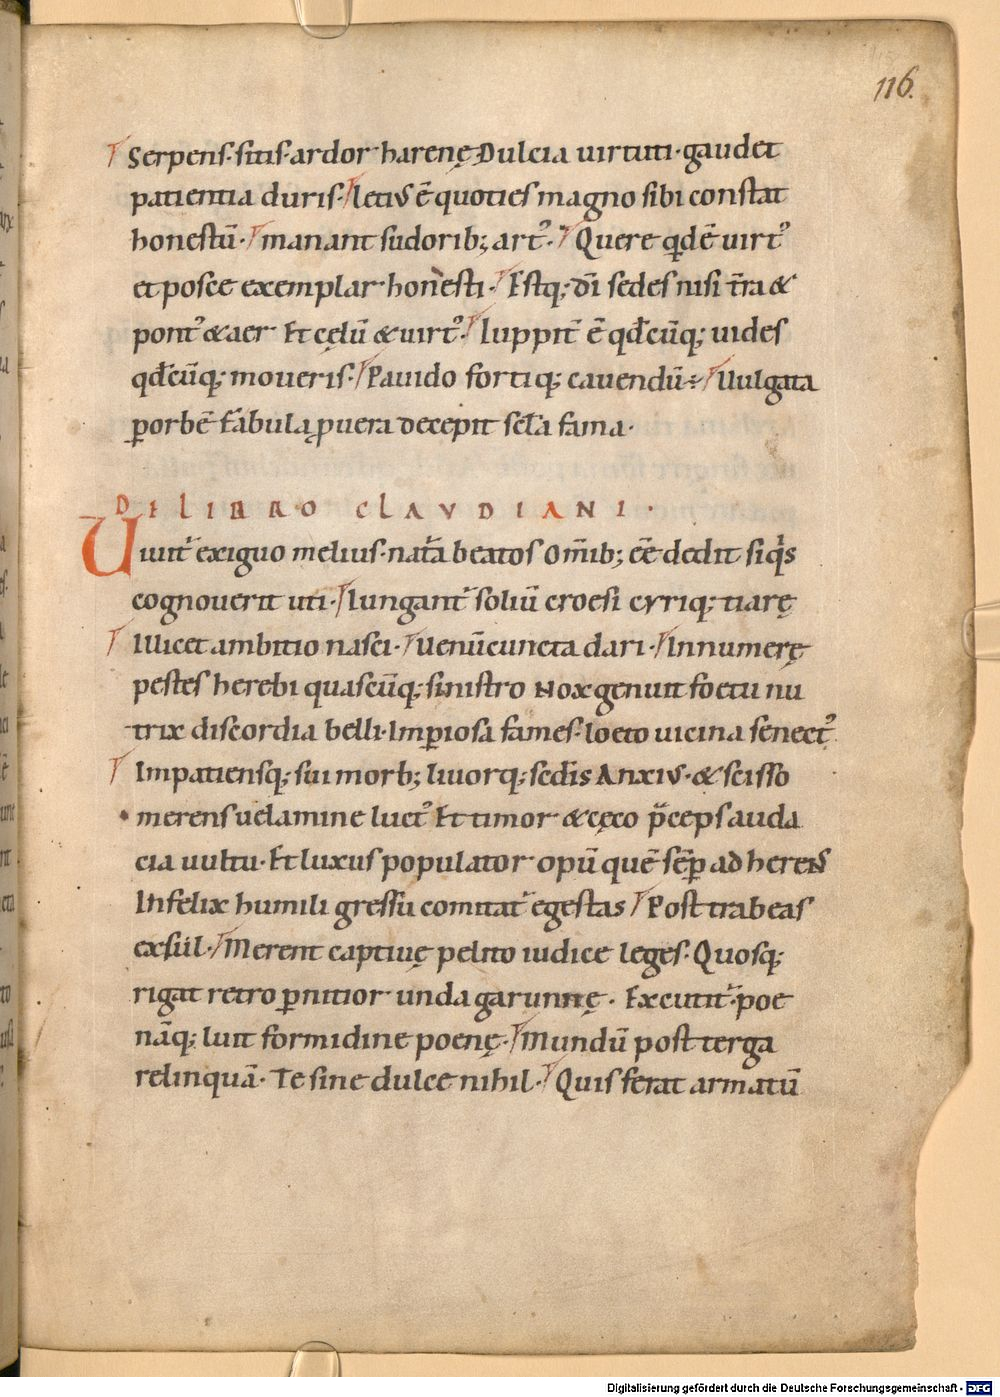 116.
Serpens· sitis· ardor· harenę Dulcia uirtuti· gaudet
patientia duris· letius ē quoties magno sibi constat
honestū· manant sudorib; art᾿· Quere qd ē uirt᾿
et posce exemplar honesti· Estq; dī sedes nisi t̄ra &
pont᾿ & aer Et cęlū & uirt᾿· Iuppit̄ ē qdcūq; uides
qdcūq; moueris· Pauido fortiq; cauendū· Uulgata
p orbē fabula puera decepit scl̄a fama·
DE LIBRO CLAVDIANI·
Uiuit᾿ exiguo melius· nat̄a beatos Om̄ib; ēē dedit siqis
cognouerit uti· Iungant᾿ soliū croesi cyriq; tiarę
Illicet ambitio nasci· Uenū cuncta dari· Innumerę
pestes herebi quascūq; sinistro Nox genuit foetu nu
trix discordia belli· Imperiosa fames· loeto uicina senect᾿
Impatiensq; sui morb; liuorq; sedis Anxius· & scisso
merens uelamine luct᾿ Et timor & cęco p̄ceps auda
cia uultu· Et luxus populator opū quē sēp ad herens
Infelix humili gressu comitat᾿ egestas Post trabeas
exsul· Merent captiuę pelito iudice leges· Quosq;
rigat retro pnitior unda garunnę· Excutit᾿ poe
nāq; luit formidine poenę· Mundū post terga
relinquā· Te sine dulce nihil· Quis ferat armatū
Digitalisierung gefördert durch die Deutsche Forschungsgemeinschaft - DFG